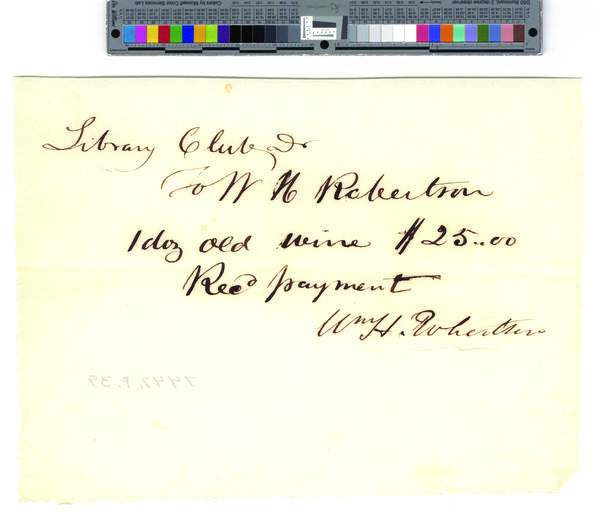 Library Club Dr
To W H Robertson
1 doz old wine $25..00
Recd payment
Wm H. Robertson
7447.F.39